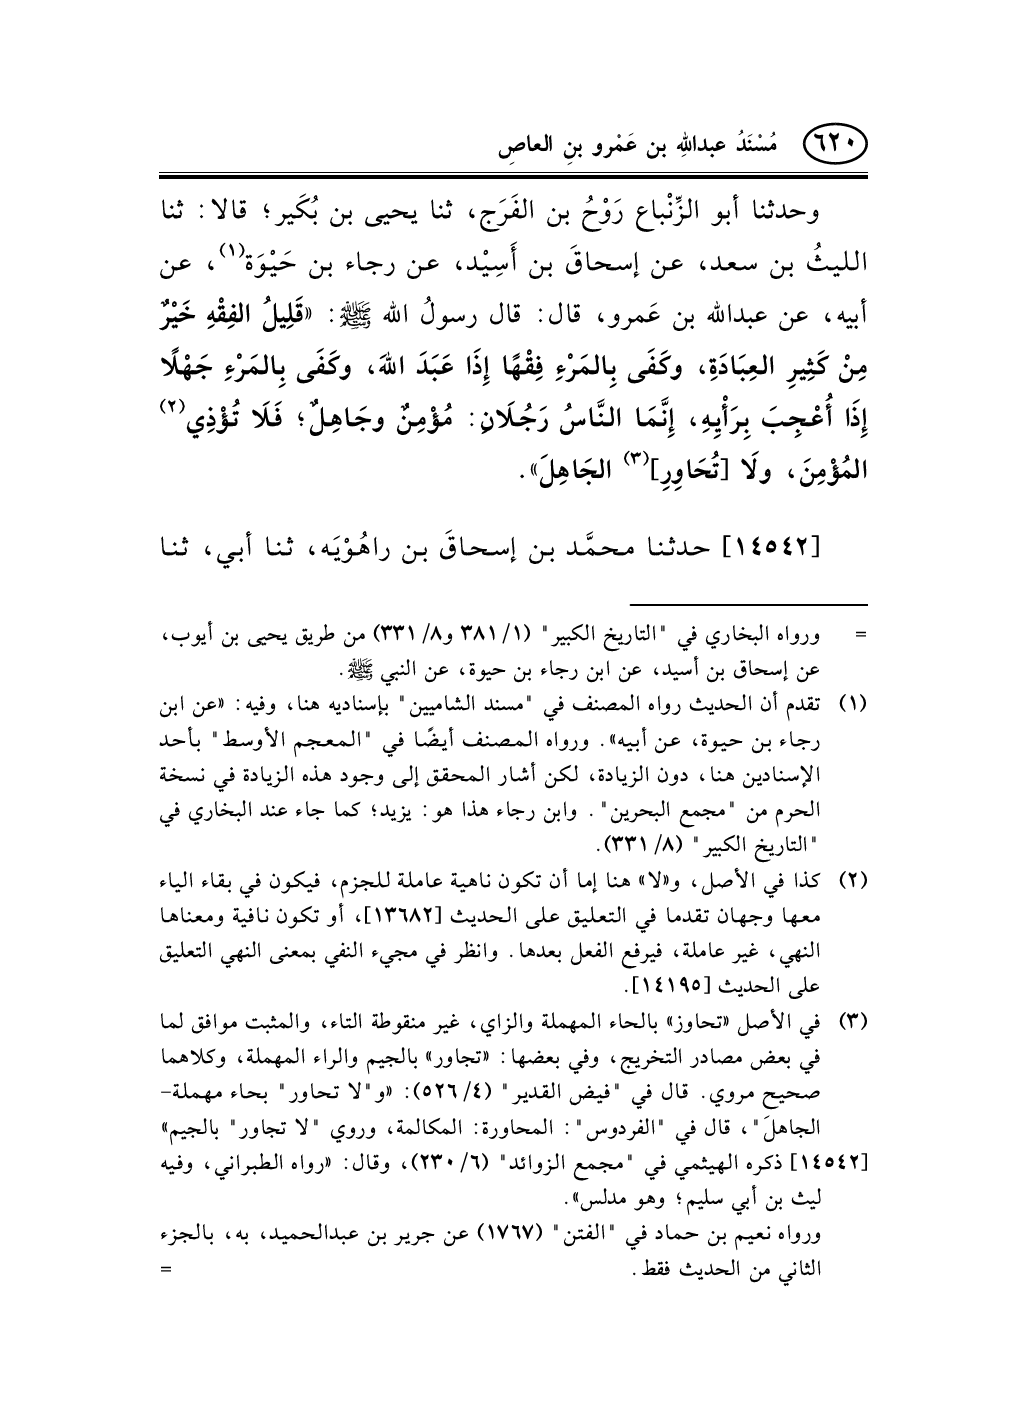 ٦٢٠ مُسْنَدُ عبدالله بن عَمْرو بنِ العاصِ
وحدثنا أبو الزِّنْباع رَوْحُ بن الفَرَج، ثنا يحيى بن بُكَير؛ قالا: ثنا
الليثُ بن سعد، عن إسحاقَ بن أَسِيْد، عن رجاء بن حَيْوَة(١)، عن
أبيه، عن عبدالله بن عَمرو، قال: قال رسولُ الله ﷺ: «قَلِيلُ الفِقْهِ خَيْرٌ
مِنْ كَثِيرِ العِبَادَةِ، وكَفَى بِالمَرْءِ فِقْهًا إِذَا عَبَدَ اللهَ، وكَفَى بِالمَرْءِ جَهْلًا
إِذَا أُعْجِبَ بِرَأْيِهِ، إِنَّمَا النَّاسُ رَجُلَانِ: مُؤْمِنٌ وجَاهِلٌ؛ فَلَا تُؤْذِي(٢)
المُؤْمِنَ، ولَا [تُحَاوِرِ](٣) الجَاهِلَ».
[١٤٥٤٢] حدثنا محمَّد بن إسحاقَ بن راهُوْيَه، ثنا أبي، ثنا
= ورواه البخاري في "التاريخ الكبير" (١/ ٣٨١ و٨/ ٣٣١) من طريق يحيى بن أيوب،
عن إسحاق بن أسيد، عن ابن رجاء بن حيوة، عن النبي ﷺ.
(١) تقدم أن الحديث رواه المصنف في "مسند الشاميين" بإسناديه هنا، وفيه: «عن ابن
رجاء بن حيوة، عن أبيه». ورواه المصنف أيضًا في "المعجم الأوسط" بأحد
الإسنادين هنا، دون الزيادة، لكن أشار المحقق إلى وجود هذه الزيادة في نسخة
الحرم من "مجمع البحرين". وابن رجاء هذا هو: يزيد؛ كما جاء عند البخاري في
"التاريخ الكبير" (٨/ ٣٣١).
(٢) كذا في الأصل، و«لا» هنا إما أن تكون ناهية عاملة للجزم، فيكون في بقاء الياء
معها وجهان تقدما في التعليق على الحديث [١٣٦٨٢]، أو تكون نافية ومعناها
النهي، غير عاملة، فيرفع الفعل بعدها. وانظر في مجيء النفي بمعنى النهي التعليق
على الحديث [١٤١٩٥].
(٣) في الأصل «تحاوز» بالحاء المهملة والزاي، غير منقوطة التاء، والمثبت موافق لما
في بعض مصادر التخريج، وفي بعضها: «تجاور» بالجيم والراء المهملة، وكلاهما
صحيح مروي. قال في "فيض القدير" (٤/ ٥٢٦): «و"لا تحاور" بحاء مهملة-
الجاهلَ"، قال في "الفردوس": المحاورة: المكالمة، وروي "لا تجاور" بالجيم»
[١٤٥٤٢] ذكره الهيثمي في "مجمع الزوائد" (٦/ ٢٣٠)، وقال: «رواه الطبراني، وفيه
ليث بن أبي سليم؛ وهو مدلس».
ورواه نعيم بن حماد في "الفتن" (١٧٦٧) عن جرير بن عبدالحميد، به، بالجزء
الثاني من الحديث فقط. =